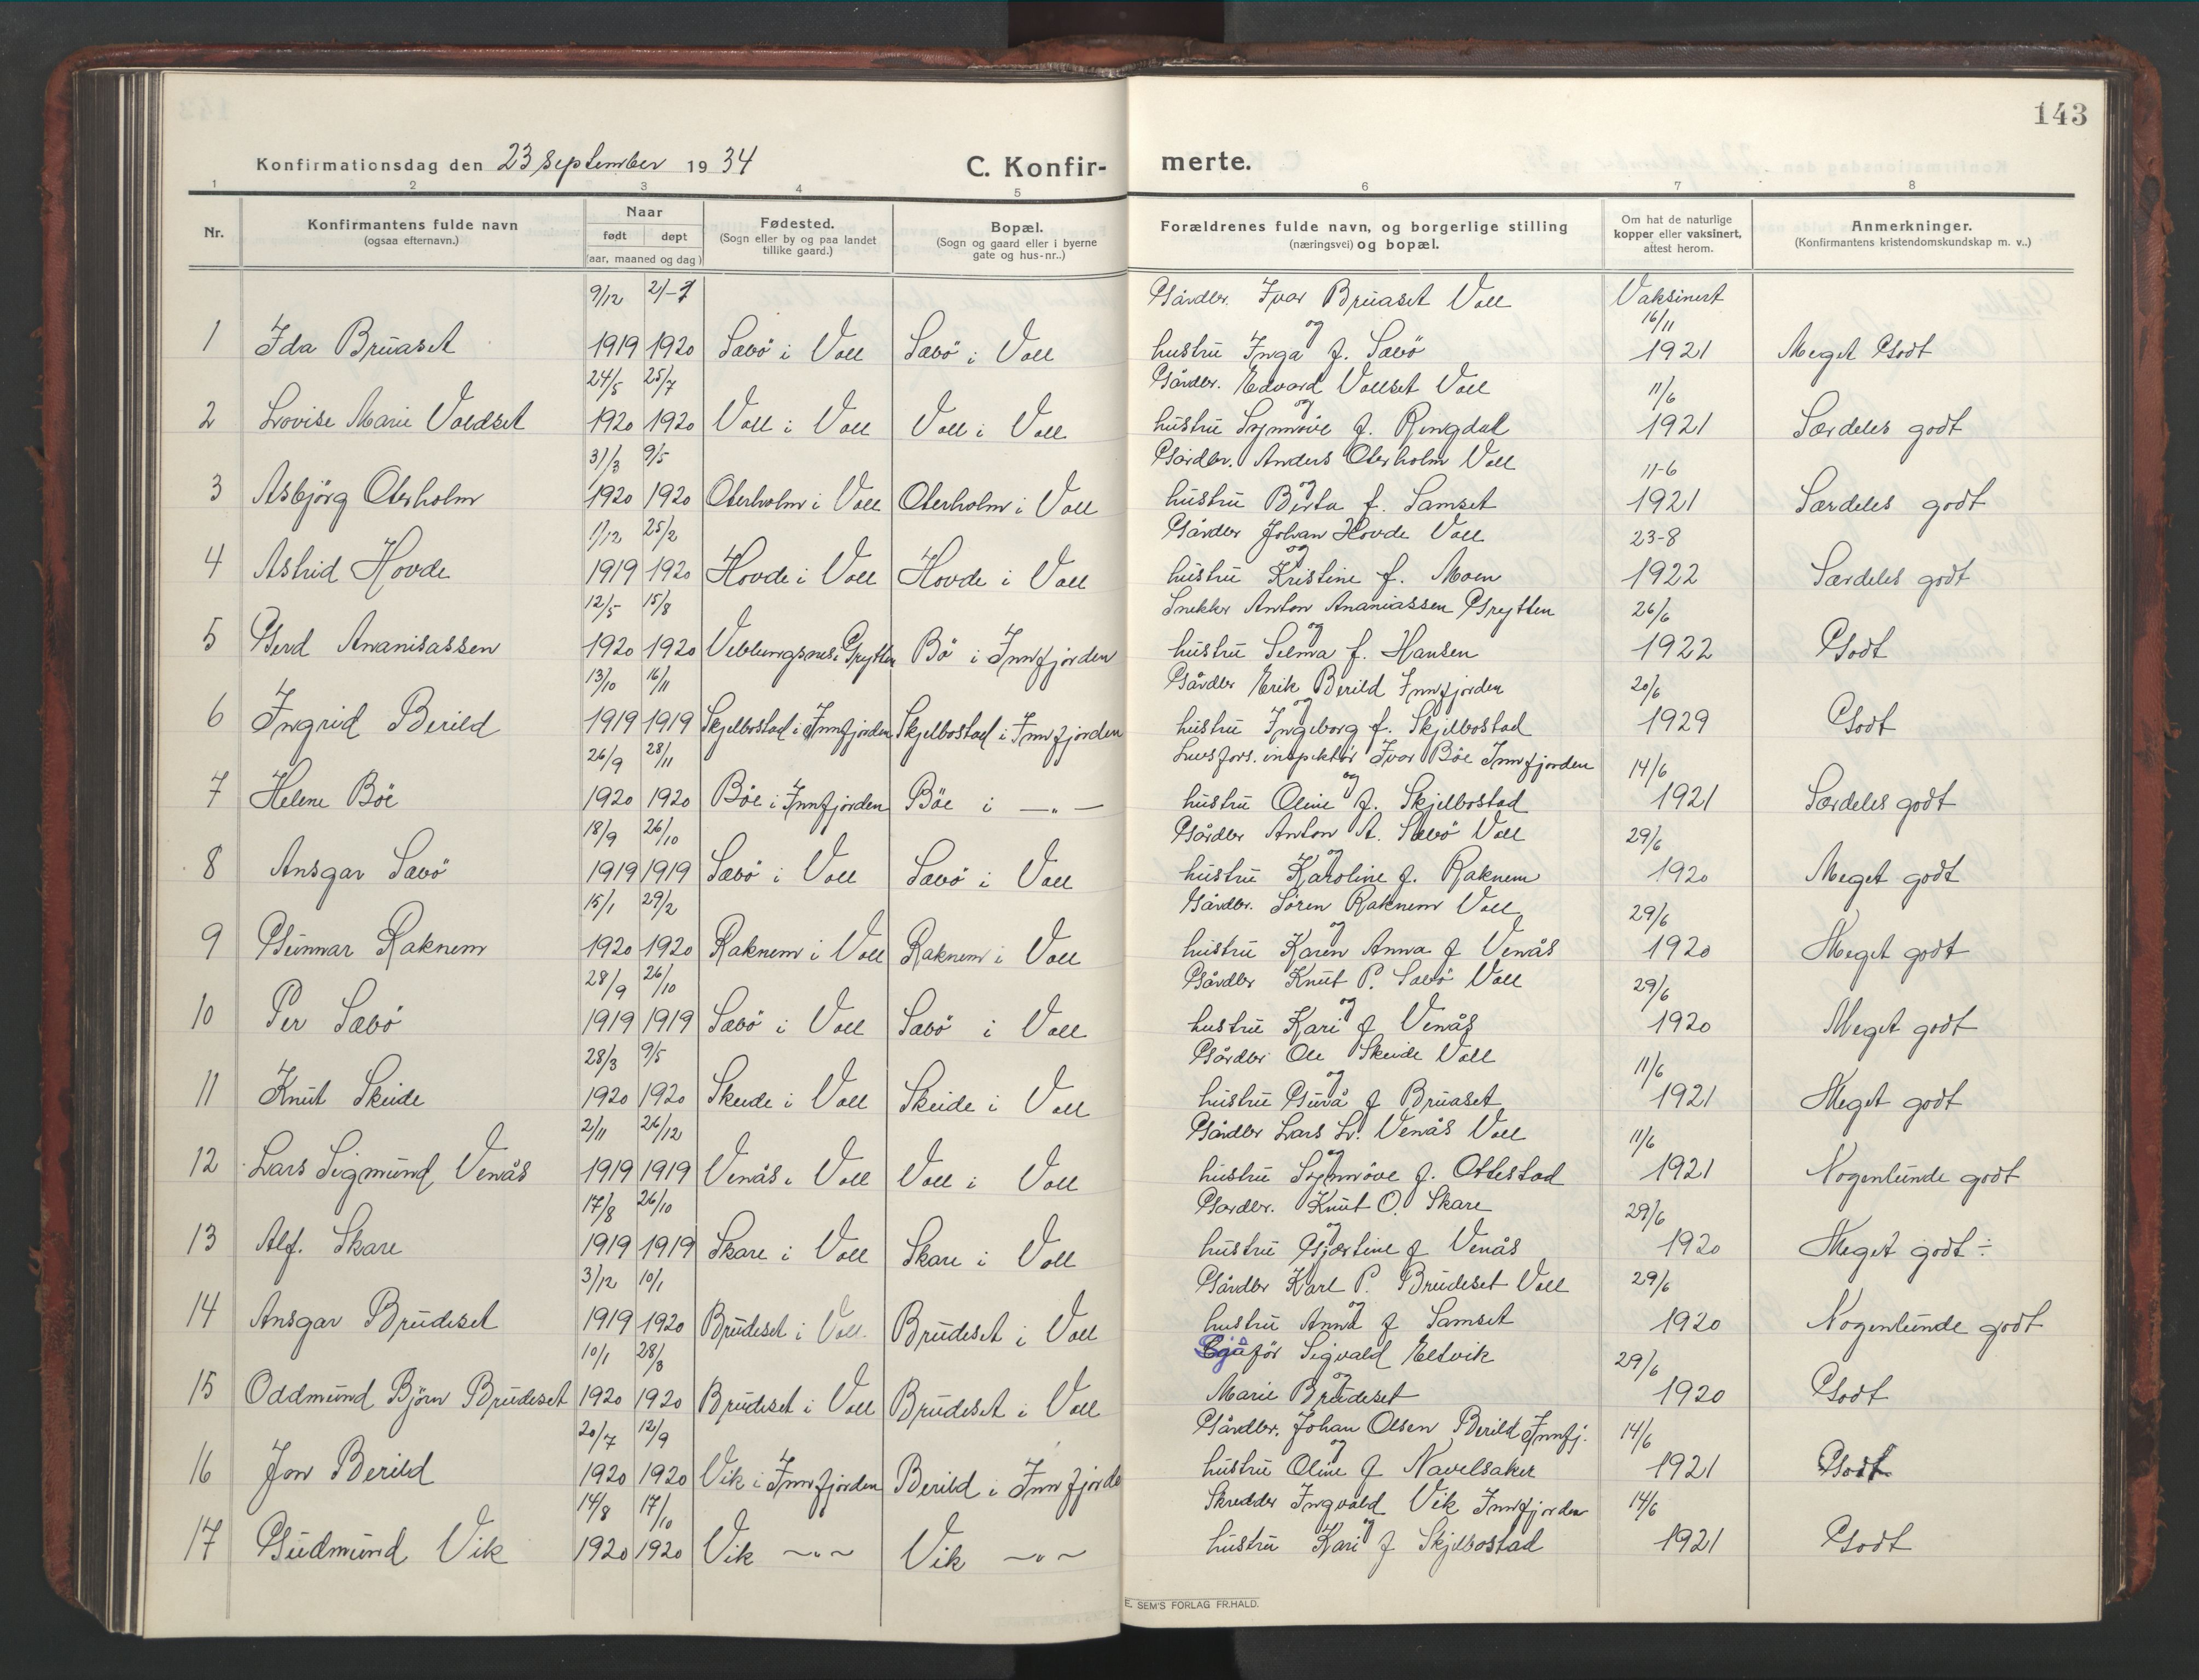 143
Konfirmationsdag den 23 September 1934
C. Konfir- merte.
1 2 3 4 5 6 7 8
Nr.
Konfirmantens fulde navn
(ogsaa efternavn.)
Naar
født døpt
(aar, maaned og dag)
Fødested.
(Sogn eller by og paa landet
tillike gaard.)
Bopæl.
(Sogn og gaard eller i byerne
gate og hus-nr..)
Forældrenes fulde navn, og borgerlige stilling
(næringsvei) og bopæl.
Om hat de naturlige
kopper eller vaksinert,
attest herom.
Anmerkninger.
(Konfirmantens kristendomskundskap m. v..)
9/12 2/-7 Gårdbr. Ivar Bruaset Voll Vaksinert
og 16/11
1 Ida Bruaset 1919 1920 Sævö i Voll Sævö i Voll hustru Inga f. Sævö 1921 Meget Godt
24/5 25/7 Gårdbr. Edvard Vollset Voll 11/6
og
2 Lovise Marie Voldset 1920 1920 Voll i Voll Voll i Voll hustru Synnöve f. Ringdal 1921 Særdeles godt
31/3 9/5 Gårdbr. Anders Oterholm Voll 11-6
og
3 Asbjörg Oterholm 1920 1920 Oterholm i Voll Oterholm i Voll hustru Berta f. Samset 1921 Særdeles godt
1/12 25/2 Gårdbr Johan Hovde Voll 23-8
og
4 Astrid Hovde 1919 1920 Hovde i Voll Hovde i Voll hustru Kristine f. Moen 1922 Særdeles godt
12/5 15/8 Snekker Anton Ananiassen Grytten 26/6
og
5 Gerd Ananisassen 1920 1920 Veblungsnes i Grytten Bö i Innfjorden hustru Selma f. Hansen 1922 Godt
13/10 16/11 Gårdbr Erik Berild Innfjorden 20/6
og
6 Ingrid Berild 1919 1919 Skjelbostad i Innfjorden Skjelbostad i Innfjorden hustru Ingeborg f. Skjelbostad 1929 Godt
26/9 28/11 Luvsfors. inspektör Ivar Böe Innfjorden 14/6
og
7 Helene Böe 1920 1920 Böe i Innfjorden Böe i —"— hustru Oline f. Skjelbostad 1921 Særdeles godt
18/9 26/10 Gårdbr Anton A. Sævö Voll 29/6
og
8 Ansgar Sævö 1919 1919 Sævö i Voll Sævö i Voll hustru Karoline f. Raknem 1920 Meget godt
15/1 29/2 Gårdbr. Sören Raknem Voll 29/6
og
9 Gunnar Raknem 1920 1920 Raknem i Voll Raknem i Voll hustru Karen Anna f Venås 1920 Meget godt
28/9 26/10 Gårdbr Knut P. Sævö Voll 29/6
og
10 Per Sævö 1919 1919 Sævö i Voll Sævö i Voll hustru Kari f Venås 1920 Meget godt
28/3 9/5 Gårdbr Ole Skeide Voll 11/6
og
11 Knut Skeide 1920 1920 Skeide i Voll Skeide i Voll hustru Guro f Bruaset 1921 Meget godt
2/11 26/12 Gårdbr Lars L. Venås Voll 11/6
og
12 Lars Sigmund Venås 1919 1919 Venås i Voll Voll i Voll hustru Synnöve f. Ottestad 1921 Nogenlunde godt
17/8 26/10 Gardbr. Knut O. Skare 29/6
og
13 Alf. Skare 1919 1919 Skare i Voll Skare i Voll hustru Gjertine f Venås 1920 Meget godt ÷
3/12 10/1 Gårdbr Karl P. Brudeset Voll 29/6
og
14 Ansgar Brudeset 1919 1920 Brudeset i Voll. Brudeset i Voll hustru Anna f Samset 1920 Nogenlunde godt
10/1 28/3 Sjåför Sigvald Eltvik 29/6
og
15 Oddmund Björn Brudeset 1920 1920 Brudeset i Voll Brudeset i Voll Marie Brudeset 1920 Godt
20/7 12/9 Gårdbr. Johan Olsen Berild Innfj. 14/6
og
16 Jon Berild 1920 1920 Vik i Innfjorden Berild i Innfjorde hustru Oline f Navelsaker 1921 Godt
14/8 17/10 Skredder Ingvald Vik Innfjorden 14/6
og
17 Gudmund Vik 1920 1920 Vik ~"~ Vik ~"~ hustru Kari f Skjelbostad 1921 Godt
E. SEM'S FORLAG FR.HALD.